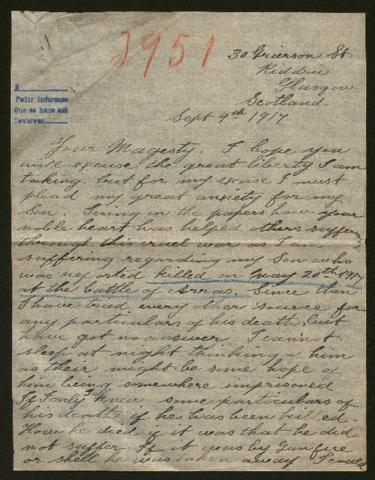 2951
30 Grierson St
Riddrie
Glasgow
Scotland
Sept 9th 1917
Pedir informes
Que se haga así
Devolver
Your Magesty. I hope you
will excuse the great liberty I am
taking but for my excuse I must
plead my great anxiety for my
Son. Seeing in the papers how your
noble heart has helped others suffering
through this cruel war as I am
suffering regarding my Son who
was reported killed on May 20th 1917
at the battle of Arras. Since then
I have tried every other source for
any particulars of his death, but
have got no answer I cannot
sleep at night thinking of him
as their might be some hope of
him being somewhere imprisoned
If I only knew some particulars of
his death if he has been killed
How he died if it was that he did
not suffer If it was by Gun fire
or shell he was taken away I could